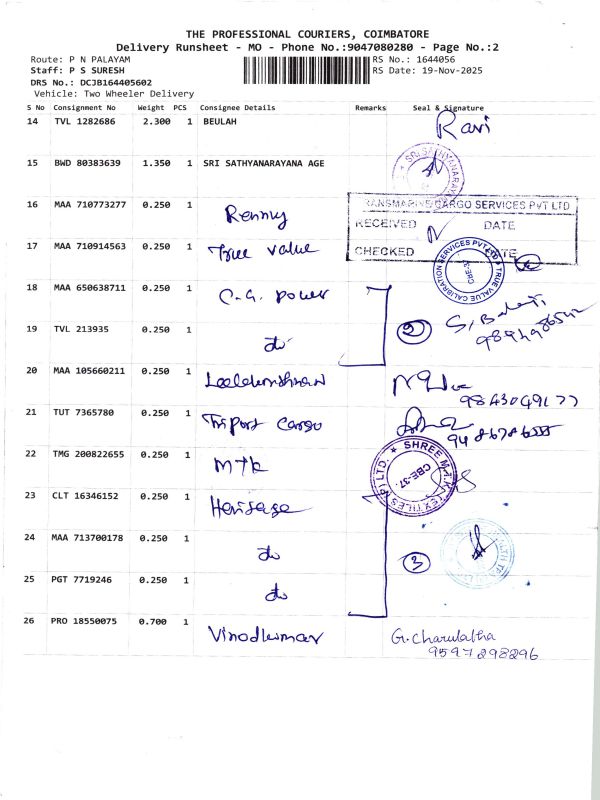 THE PROFESSIONAL COURIERS, COIMBATORE
Delivery Runsheet - MO - Phone No.:9047080280 - Page No.:2
Route: P N PALAYAM
RS No.: 1644056
Staff: P S SURESH
RS Date: 19-Nov-2025
DRS No.: DCJB164405602
Vehicle: Two Wheeler Delivery
S No Consignment No Weight PCS Consignee Details Remarks Seal & Signature
14 TVL 1282686 2.300 1 BEULAH Ravi
15 BWD 80383639 1.350 1 SRI SATHYANARAYANA AGE
SRI SATHYANARAYANA
16 MAA 710773277 0.250 1 Renny
TRANSMARINE CARGO SERVICES PVT LTD
RECEIVED DATE
17 MAA 710914563 0.250 1 True value
CHECKED DATE
TRUE VALUE CALIBRATION SERVICES PVT LTD
CBE-37
18 MAA 650638711 0.250 1 C.G. power
19 TVL 213935 0.250 1 do
2
20 MAA 105660211 0.250 1
9843049177
21 TUT 7365780 0.250 1 Triport Cargo
22 TMG 200822655 0.250 1 MTK
SHREE M.T.K TEXTILES P LTD.
CBE-37.
23 CLT 16346152 0.250 1 Heritage
24 MAA 713700178 0.250 1 do
3
25 PGT 7719246 0.250 1 do
26 PRO 18550075 0.700 1 Vinodkumar G. Charulatha
9597298296